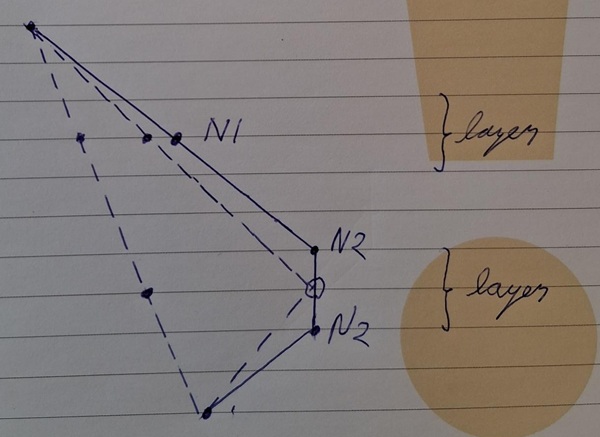 N1
layer
N2
layer
N2